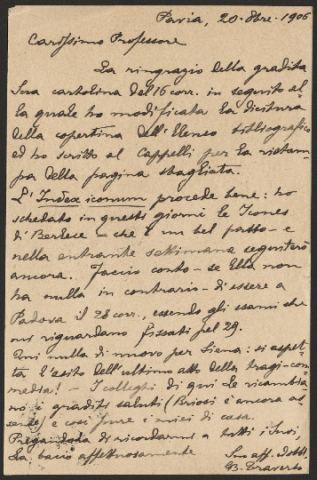 Pavia, 20. 8bre. 1906
Carissimo Professore
La ringrazio della gradita
Sua cartolina del 16 corr. in seguito al
la quale ho modificata la dicitura
della copertina dell'Elenco bibliografico
ed ho scritto al Cappelli per la ristam-
pa della pagina sbagliata.
L'Index iconum procede bene: ho
schedato in questi giorni le Icones
di Berlese - che è un bel passo - e
nella entrante settimana seguiterò
ancora. Faccio conto - se Ella non
ha nulla in contrario - di essere a
Padova il 28 corr., essendo gli esami che
mi riguardano fissati pel 29.
Qui nulla di nuovo per Siena: si aspet-
ta l'esito dell'ultimo atto della tragi-com-
media! - I colleghi di qui Le ricambia
no i graditi saluti (Briosi è ancora as
sente) e così pure i miei di casa.
Pregandola di ricordarmi a tutti i Suoi,
La bacio affettuosamente
Suo aff. dott.
GB. Traverso